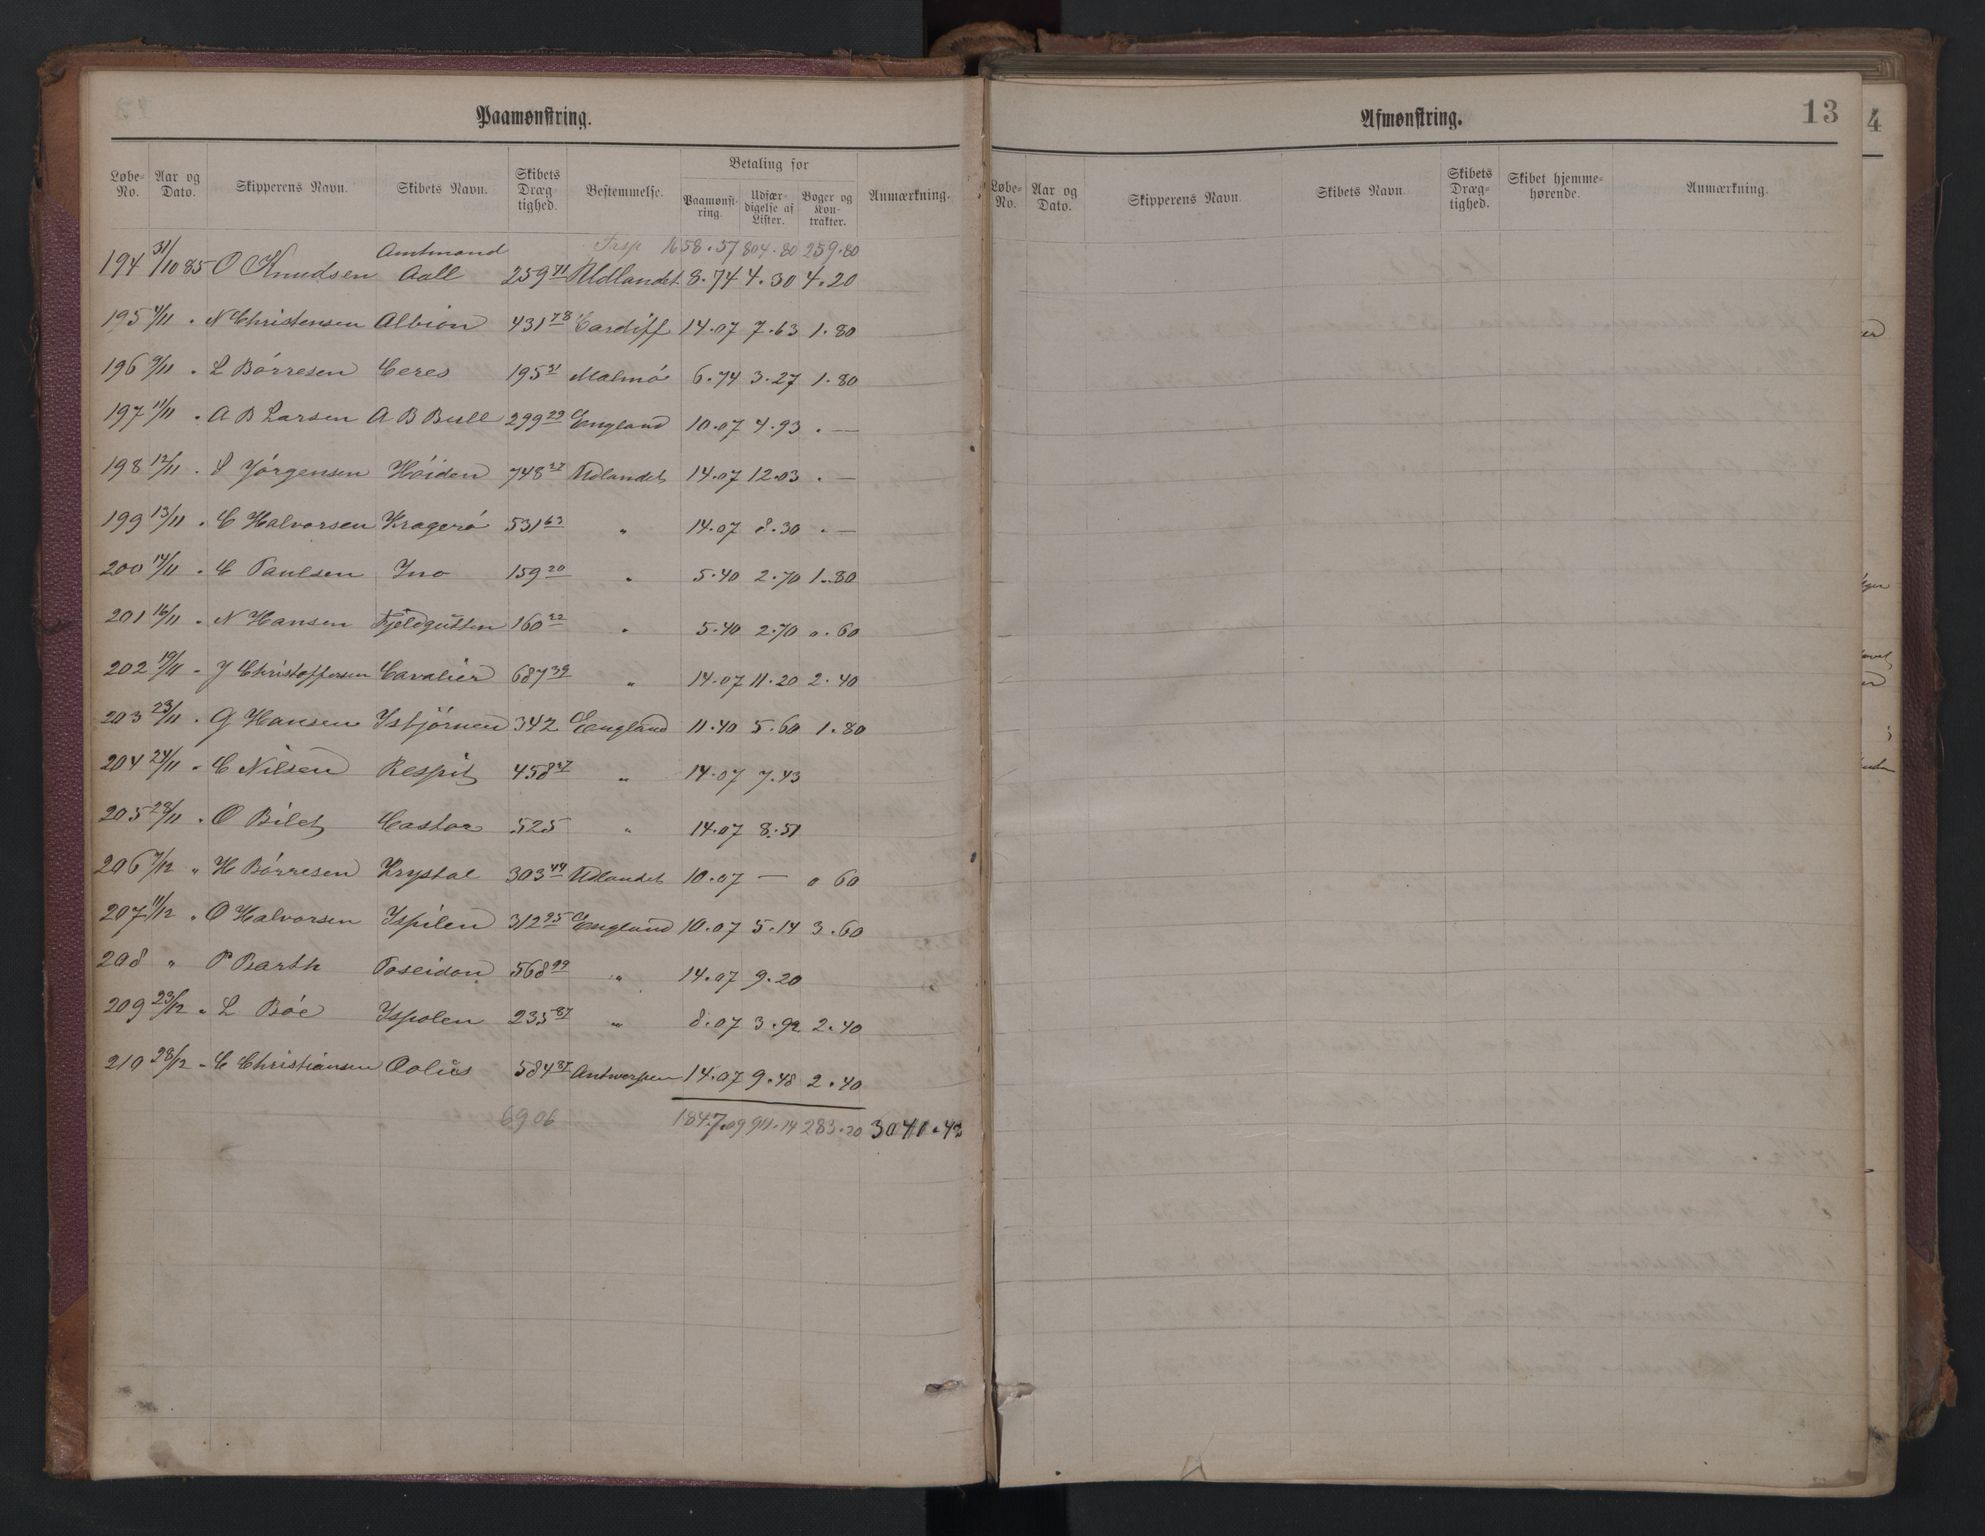 Paamønstring.
Løbe-No. Aar og Dato. Skipperens Navn. Skibets Navn. Skibets Dræg-tighed. Bestemmelse. Betaling for Paamønst-ring. Udfær-digelse af Lister. Bøger og Kon-trakter. Anmærkning.
Trsp 1658.57 804.80 259.80
194 31/10 85 O Knudsen Amtmand Aall 259 71 Udlandet 8.74 4.30 4.20
195 4/11 " N Christensen Albion 431 78 Cardiff 14.07 7.63 1.80
196 9/11 " L Börresen Ceres 195 31 Malmö 6.74 3.27 1.80
197 11/11 " A B Larsen A B Bull 299 29 England 10.07 4.93 . —
198 12/11 " S Jörgensen Höiden 748 27 Udlandet 14.07 12.03 . —
199 13/11 " C Halvorsen Kragerö 531 63 " 14.07 8.30 . —
200 14/11 " C Paulsen Ino 159 20 " 5.40 2.70 1.80
201 16/11 " N Hansen Fjeldgutten 160 22 " 5.40 2.70 0.60
202 19/11 " J Christoffersen Cavalier 687 39 " 14.07 11.20 2.40
203 23/11 " G Hansen Isbjörnen 342 England 11.40 5.60 1.80
204 24/11 " C Nilsen Respit 458 27 " 14.07 7.43
205 28/11 " O Bilet Castor 525 " 14.07 8.51
206 7/12 " H Börresen Krystal 303 44 Udlandet 10.07 — 0 60
207 11/12 " O Halvorsen Ispilen 312 95 England 10.07 5.14 3.60
208 " P Barth Poseidon 568 99 " 14.07 9.20
209 23/12 " L Böe Ispolen 235 87 " 8.07 3.92 2.40
210 28/12 " C Christiansen Oolus 584 87 Antwerpen 14.07 9.48 2.40
6906 1847.09 911.14 283.20 3041.43
Afmønstring.
13
4
Løbe-No. Aar og Dato. Skipperens Navn. Skibets Navn Skibets Dræg-tighed. Skibet hjemme-hørende. Anmærkning.